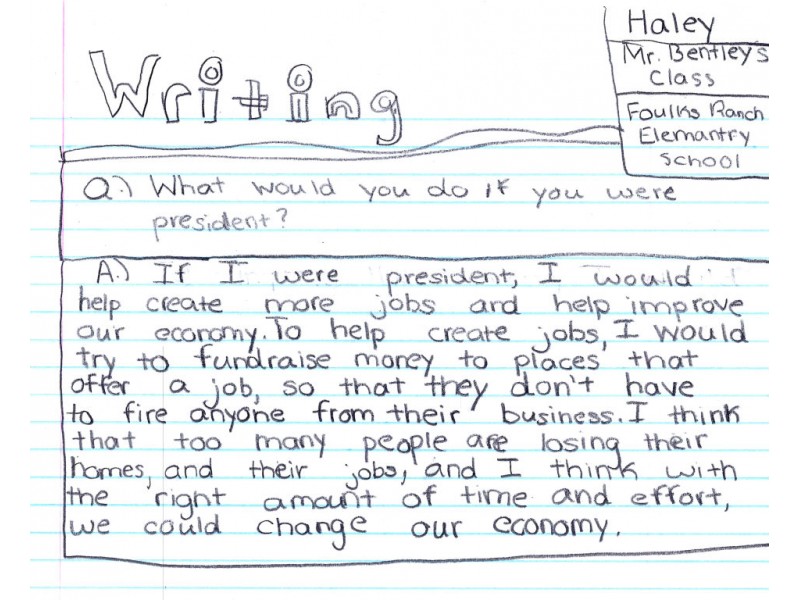 Haley
Mr. Bentley's
Class
Foulks Ranch
Elemantry
School
Writing
Q.) What would you do if you were
president?
A.) If I were president, I would
help create more jobs and help improve
our economy. To help create jobs, I would
try to fundraise money to places that
offer a job, so that they don't have
to fire anyone from their business. I think
that too many people are losing their
homes, and their jobs, and I think with
the right amount of time and effort,
we could change our economy.